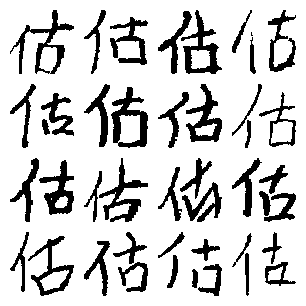 估估估估
估估估估
估估估估
估估估估